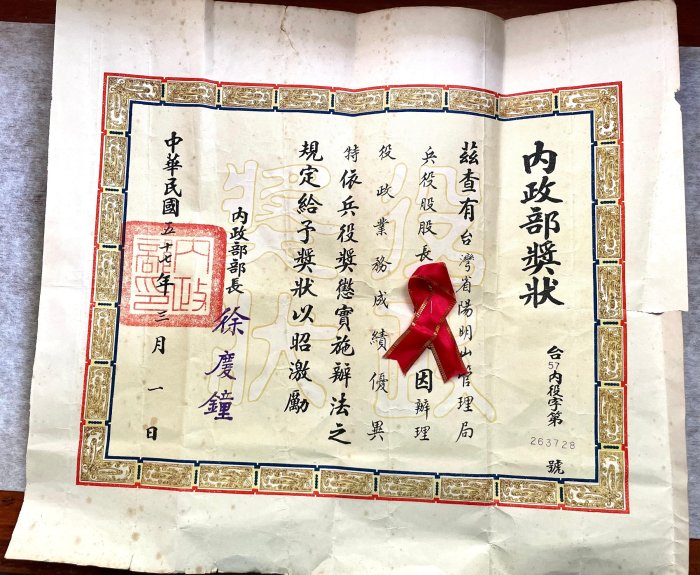 內政部獎狀
台57內役字第263728號
茲查有台灣省陽明山管理局
兵役股股長 因辦理
役政業務成績優異
特依兵役獎懲實施辦法之
規定給予獎狀以昭激勵
內政部部長 徐慶鐘
中華民國五十七年三月一日
內政部印
役政獎狀